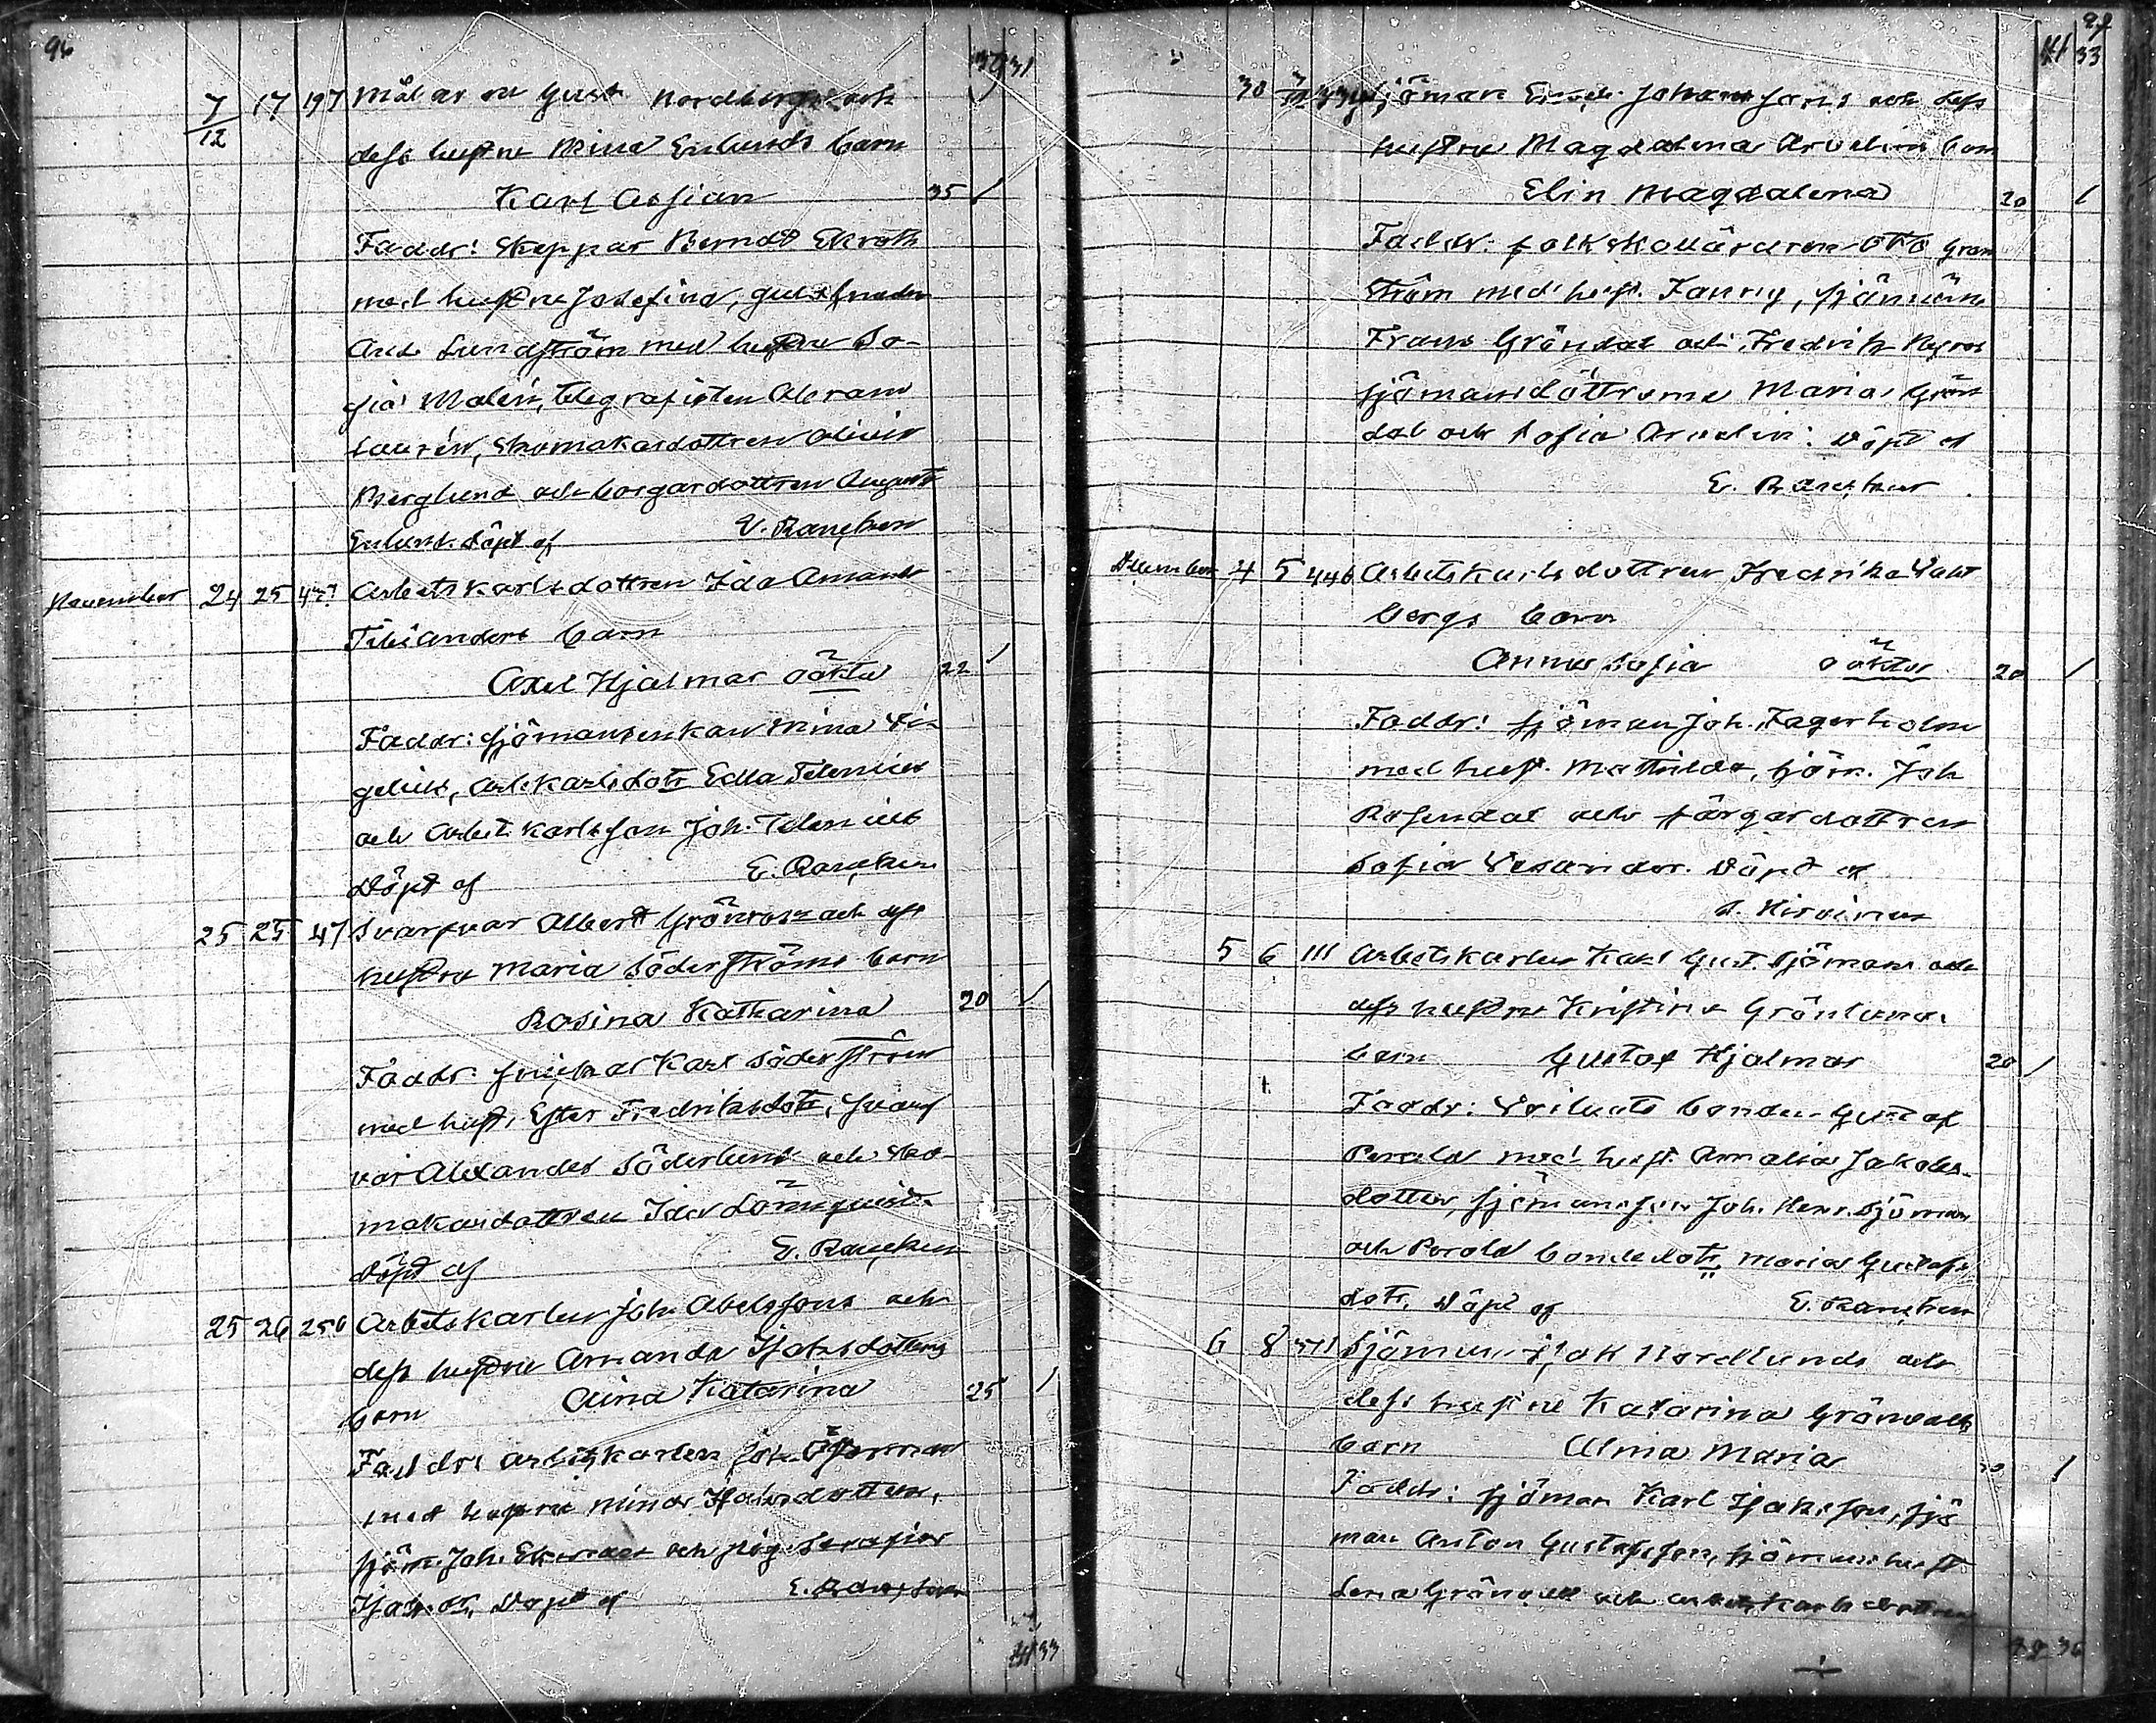 96
37 31
7/12 17 197 Målaren Gust Nordbergs och
dess hustru Mina Enlunds barn
Karl Assian 35 /
Faddr: Skeppar Berndt Ekroth
med hustru Josefina, guldsmeden
And. Lundström med hustru So-
fia Malin, telegrafisten Abram
Laurén, Skomakardottren Olivia
Berglund och borgardottren August
Enlund. Döpt af E. Rancken
November 24 25 Arbetskarlsdottren Ida Amanda
barn
Axel Hjalmar oäkta 22 /
Faddr: sjömansenkan Mina Vi-
gelius, arb.karlsdotr Edla Telenius
och Arbets karlsson Joh. Telenius
Döpt af E. Rancken
25 25 47 Svarfvar Albert Grönroos och dess
hustru Maria Söderströms barn
Rosina Katharina 20 /
Faddr. Karl Söderström
med hust. Ester Fredriksdotr, svarf
var Alexander Söderlund och sko-
makardottren Ida Lönnquist.
Döpt af E. Rancken
25 26 250 Arbetskarlen Joh Abelssons och
dess hustru Amanda Isaksdotters
barn Aina Katarina 25 /
Faddr: Arbetskarlen Joh. Österman
med hustru Mina Isaksdotter,
sjöm. Joh. Ekman och pig. Serafia
Isaksdr. Döpt af E. Rancken
41 33
97
41 33
30 Sjöman Johanssons och dess
hustru Magdalena Arvelins barn
Elin Magdalena 20 /
Faddr: folkskolläraren Otto Gran
ström med hust. Fanny, sjömän
Frans Gröndal och Fredrik Nyroos
sjömansdöttrarna Maria Grön
dal och Sofia Arvelin: Döpt af
E. Rancken
December 4 5 446 Arbetskarlsdottren Fredrika Dahl
bergs barn
Anna Sofia oäkta 20 /
Faddr: sjöman Joh. Fagerholm
med hust. Mathilda, sjöm. Joh
Rosendal och färgardottren
Sofia Vesander. Döpt af
Hirvinen
5 6 111 Arbetskarlen Karl Gust. Sjömans och
dess hustru Kristina Grönlunds
barn Gustaf Hjalmar 20 /
Faddr: bonden Gustaf
Perälä med hust. Amalia Jakobs-
dotter, sjömansson Joh. Henr. Sjöman
och Perälä bondedotr. Maria Gustafs
dotr. Döpt af E. Rancken
6 8 Sjöman Isak Nordlunds och
dess hustru Katarina Grönvalls
barn Alma Maria 20 /
Faddr: sjöman Karl Isaksson, sjö
man Anton Gustafsson, sjömanshust
Lena Grönvall och arbetskarls dottren
42 36